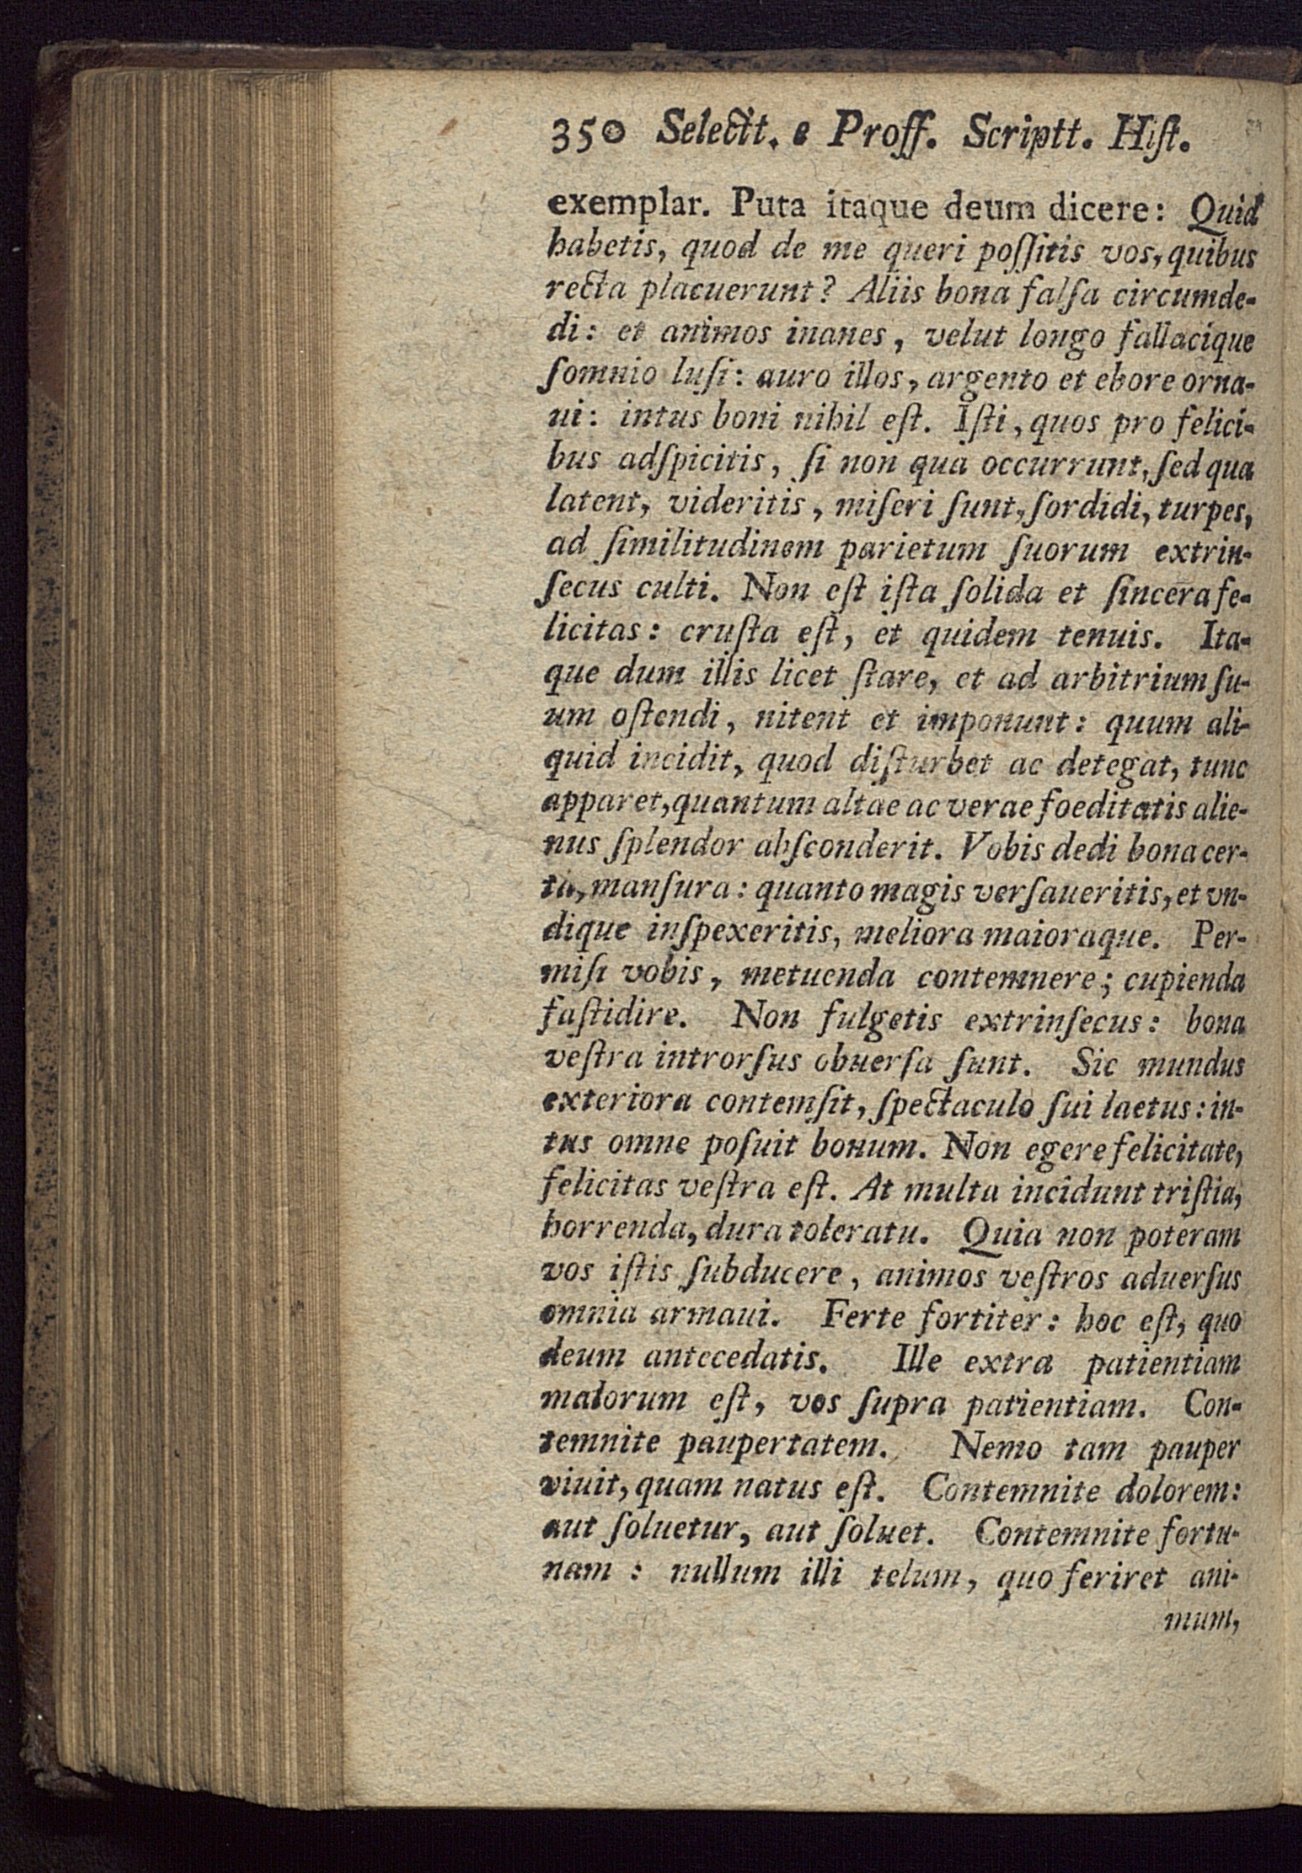 350 Selectt. e Proff. Scriptt. Hiſt.
exemplar. Puta itaque deum dicere: Quid
habetis, quod de me queri poſſitis vos, quibus
recta placuerunt? Aliis bona falſa circumde-
di: et animos inanes, velut longo fallacique
ſomnio luſi: auro illos, argento et ebore orna-
ui: intus boni nihil eſt. Iſti, quos pro felici-
bus adſpicitis, ſi non qua occurrunt, ſed qua
latent, videritis, miſeri ſunt, ſordidi, turpes,
ad ſimilitudinem parietum ſuorum extrin-
ſecus culti. Non eſt iſta ſolida et ſincera fe-
licitas: cruſta eſt, et quidem tenuis. Ita-
que dum illis licet ſtare, et ad arbitrium ſu-
um oſtendi, nitent et imponunt: quum ali-
quid incidit, quod diſturbet ac detegat, tunc
apparet, quantum altae ac verae foeditatis alie-
nus ſplendor abſconderit. Vobis dedi bona cer-
ta, manſura: quanto magis verſaueritis, et vn-
dique inſpexeritis, meliora maioraque. Per-
miſi vobis, metuenda contemnere; cupienda
faſtidire. Non fulgetis extrinſecus: bona
veſtra introrſus obuerſa ſunt. Sic mundus
exteriora contemſit, ſpectaculo ſui laetus: in-
tus omne poſuit bonum. Non egere felicitate,
felicitas veſtra eſt. At multa incidunt triſtia,
horrenda, dura toleratu. Quia non poteram
vos iſtis ſubducere, animos veſtros aduerſus
omnia armaui. Ferte fortiter: hoc eſt, quo
deum antecedatis. Ille extra patientiam
malorum eſt, vos ſupra patientiam. Con-
temnite paupertatem. Nemo tam pauper
viuit, quam natus eſt. Contemnite dolorem:
aut ſoluetur, aut ſoluet. Contemnite fortu-
nam: nullum illi telum, quo feriret ani-
mum,